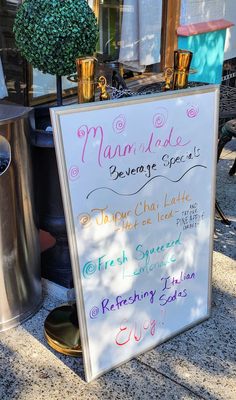 Marmalade
Beverage Specials
@Jaipur Chai Latte
-Hot or Iced-
@Fresh Squeezed
Lemonade
@Refreshing Italian
Sodas
Enjoy!